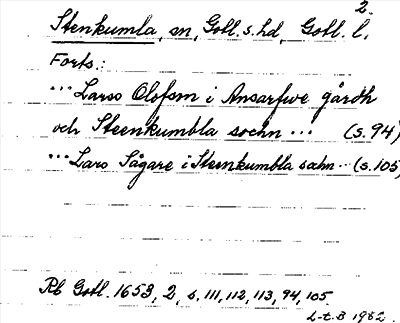 2.
Stenkumla, sn, Gotl. s. hd, Gotl. l.
Forts.:
··· Larss Olofsm i Ansarfwe gårdh
och Steenkumbla sochn ··· (s. 94)
··· Lars Sågare i Steenkumbla sahn ·· (s. 105)
Rb Gotl. 1653, 2, s. 111, 112, 113, 94, 105.
L-t. B 1982.